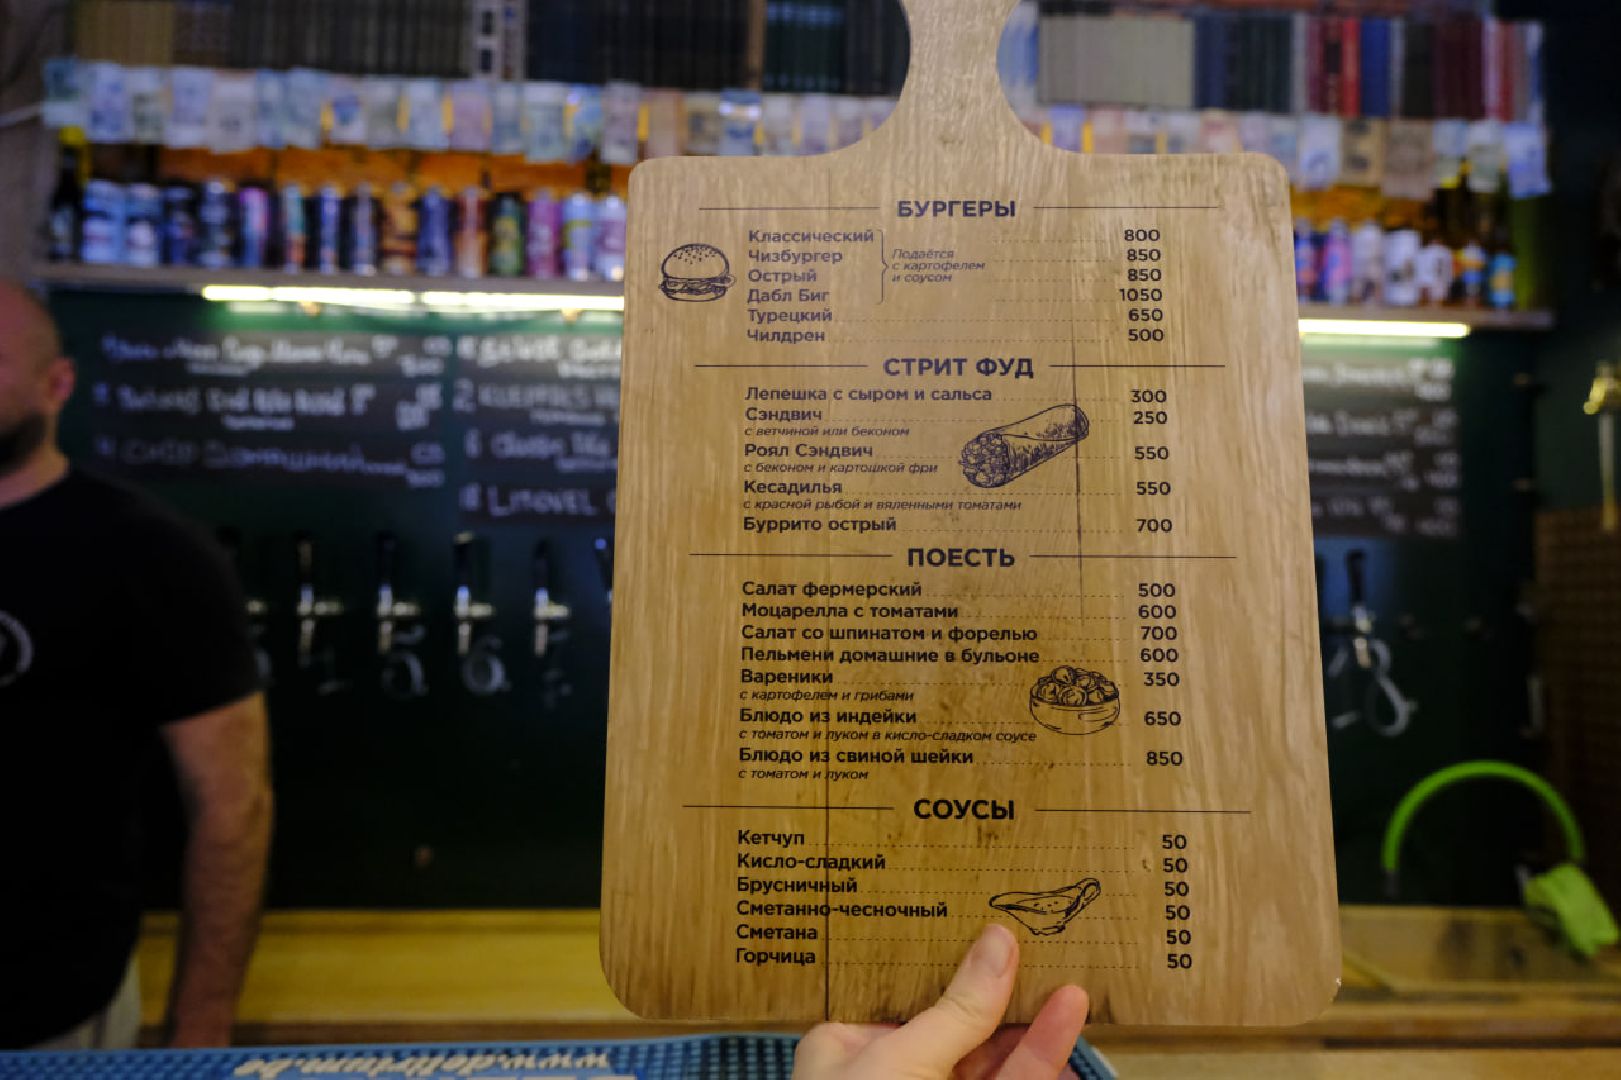 БУРГЕРЫ
Классический 800
Чизбургер 850
Острый 850
Дабл Биг 1050
Подаётся
с картофелем
и соусом
Турецкий 650
Чилдрен 500
СТРИТ ФУД
Лепешка с сыром и сальса 300
Сэндвич 250
с ветчиной или беконом
Роял Сэндвич 550
с беконом и картошкой фри
Кесадилья 550
с красной рыбой и вяленными томатами
Буррито острый 700
ПОЕСТЬ
Салат фермерский 500
Моцарелла с томатами 600
Салат со шпинатом и форелью 700
Пельмени домашние в бульоне 600
Вареники 350
с картофелем и грибами
Блюдо из индейки 650
с томатом и луком в кисло-сладком соусе
Блюдо из свиной шейки 850
с томатом и луком
СОУСЫ
Кетчуп 50
Кисло-сладкий 50
Брусничный 50
Сметанно-чесночный 50
Сметана 50
Горчица 50
5 6
www.delirium.be